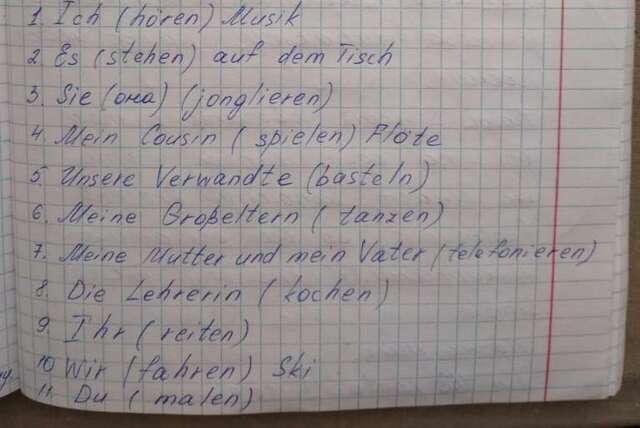 1. Ich (hören) Musik
2. Es (stehen) auf dem Tisch
3. Sie (она) (jonglieren)
4. Mein Cousin (spielen) Flöte
5. Unsere Verwandte (basteln)
6. Meine Großeltern (tanzen)
7. Meine Mutter und mein Vater (telefonieren)
8. Die Lehrerin (kochen)
9. Ihr (reiten)
10 Wir (fahren) Ski
11. Du (malen)